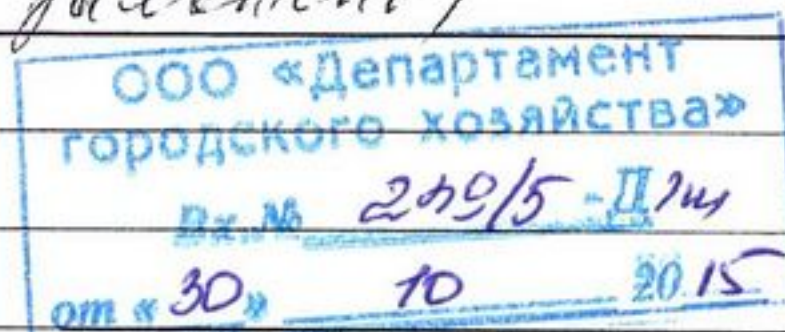 ООО «Департамент
городского хозяйства»
Вх.№
от «30» 10 2015